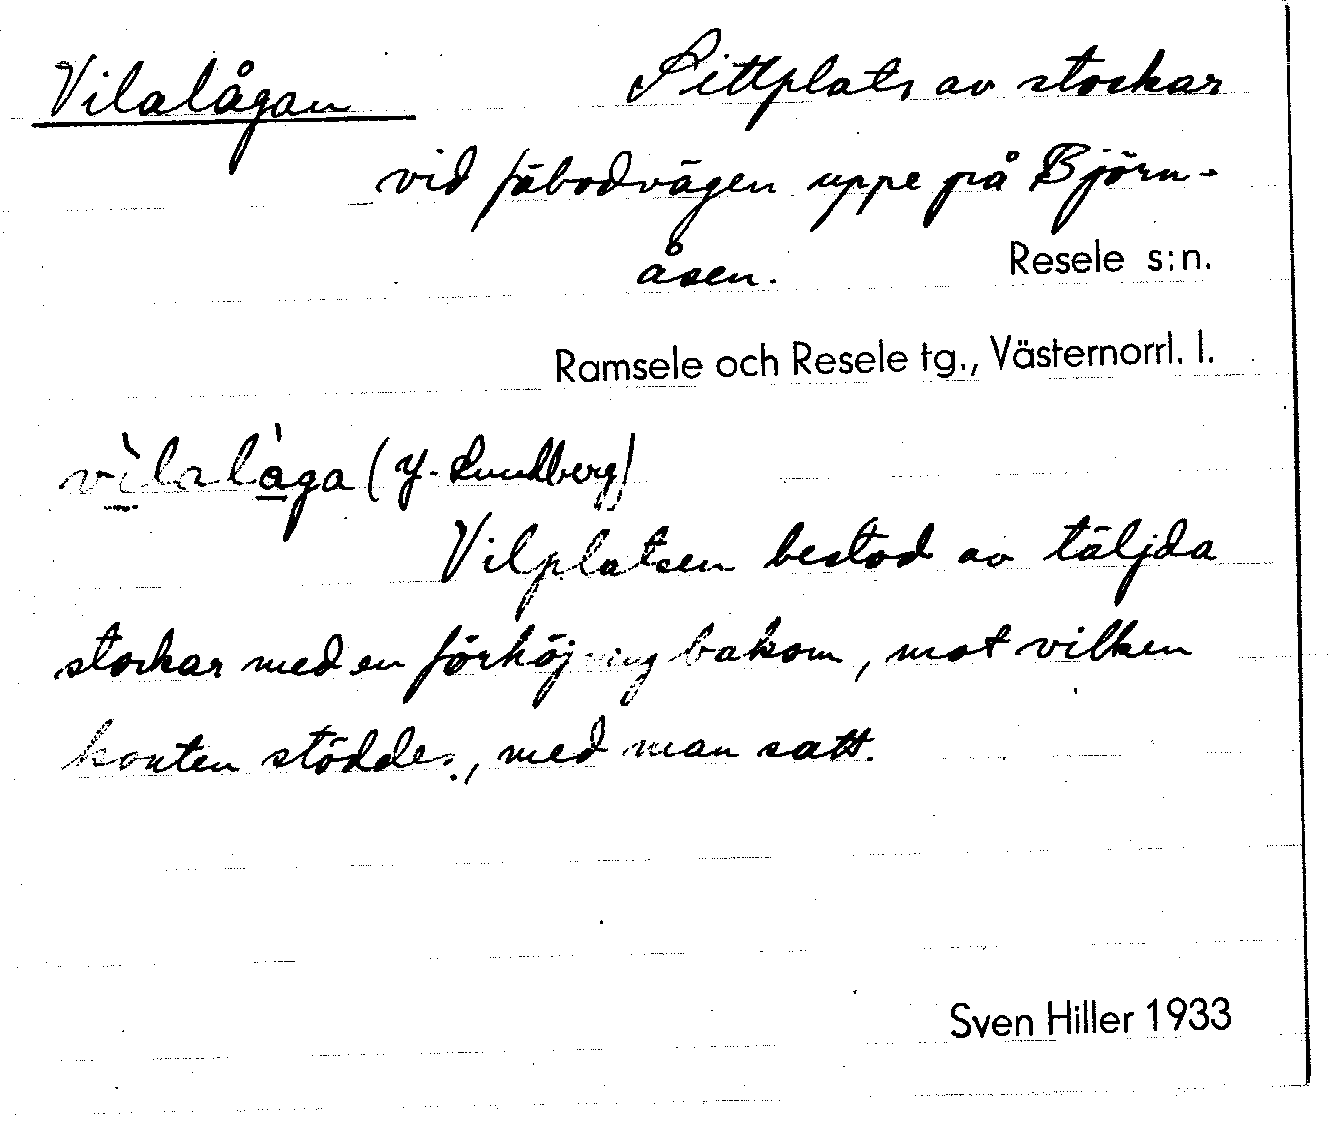 Vilalågan Sittplats av stockar
vid fäbodvägen uppe på Björn-
åsen. Resele s:n.
Ramsele och Resele tg., Västernorrl. l.
vìlalàga (J. Lundberg)
Vilplatsen bestod av täljda
stockar med en förhöjning bakom, mot vilken
konten stöddes, med man satt.
Sven Hiller 1933